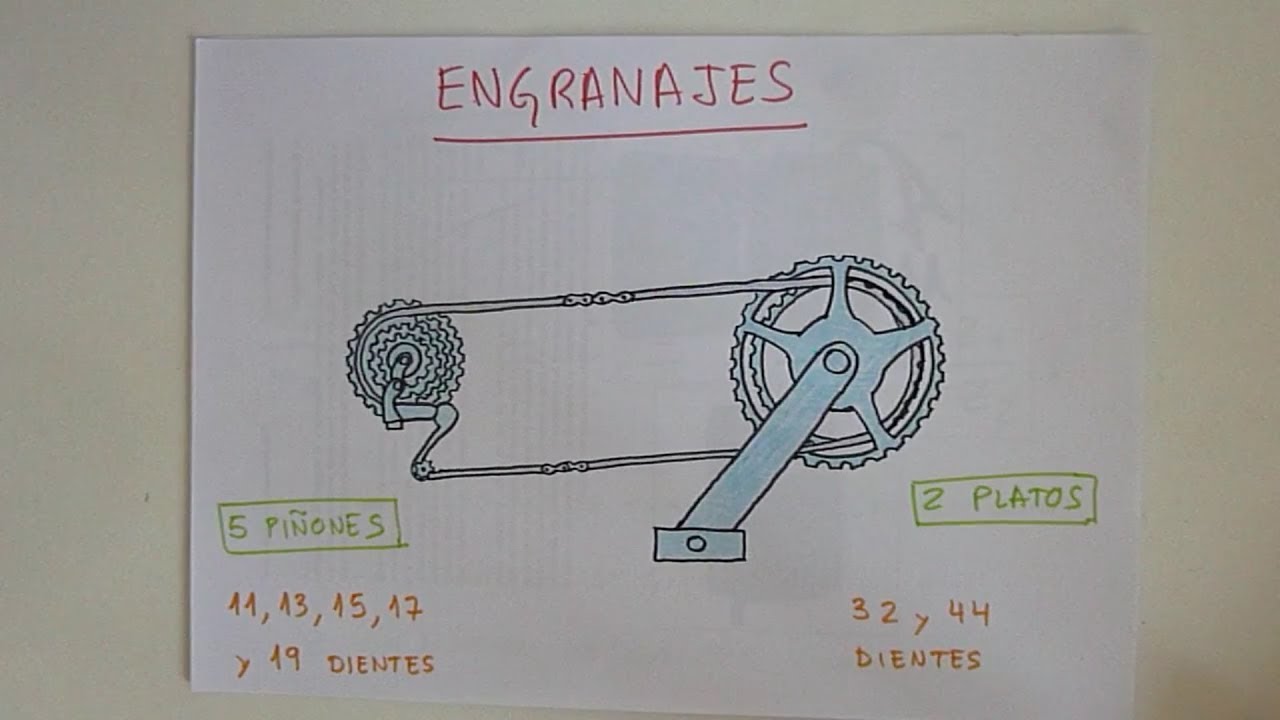 ENGRANAJES
5 PIÑONES
11, 13, 15, 17
y 19 DIENTES
2 PLATOS
32 y 44
DIENTES